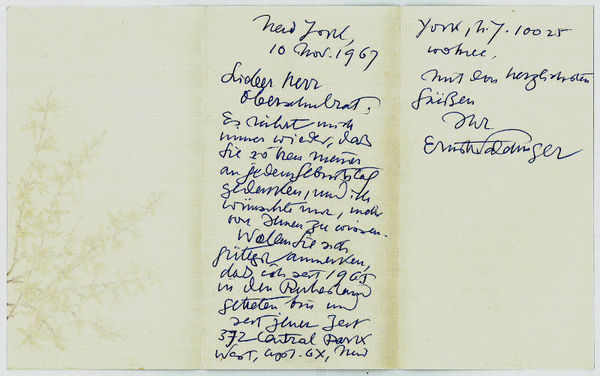 New York,
10 Nov. 1967
Lieber Herr
Oberschulrat,
Es rührt mich
immer wieder, daß
Sie so treu meiner
an jedem Geburtstag
gedenken, und ich
wünschte nur, mehr
von Ihnen zu wissen.
Wollen Sie sich
gütigst anmerken,
daß ich seit 1965
in den Ruhestand
getreten bin und
seit jener Zeit
372 Central Park
West, Apt. 6X, New
York, N.Y. 10025
wohne.
Mit den herzlichsten
Grüßen
Ihr
Ernst Waldinger